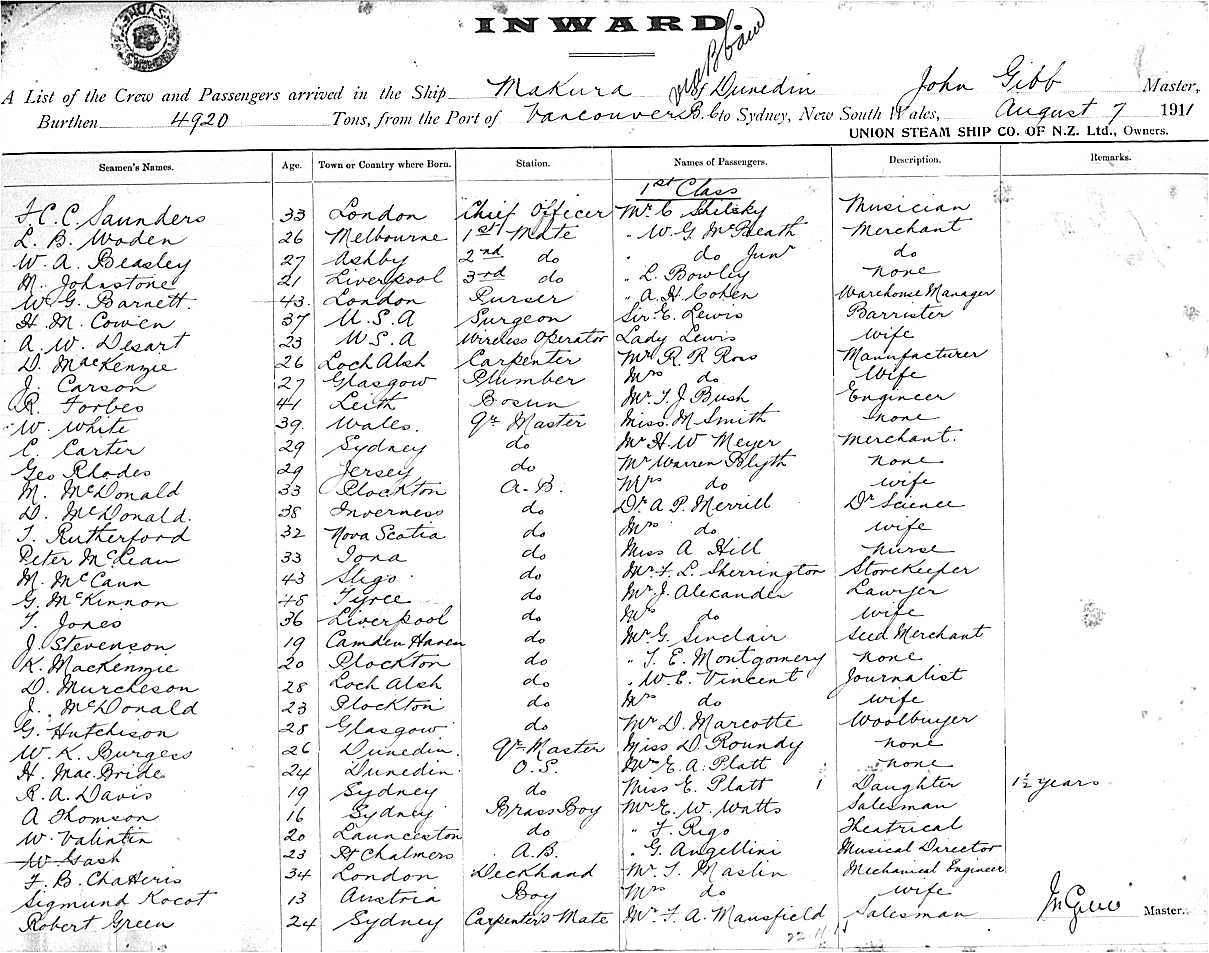 INWARD.
A List of the Crew and Passengers arrived in the Ship Makura of Dunedin John Gibb Master,
Burthen 4920 Tons, from the Port of Vancouver B.C. to Sydney, New South Wales, August 7 1911
UNION STEAM SHIP CO. OF N.Z. Ltd., Owners.
Seamen's Names. Age. Town or Country where Born. Station. Names of Passengers. Description. Remarks.
1st Class
F. C. C. Saunders 33 London Chief Officer Mr. C Shilsky Musician
L. B. Woden 26 Melbourne 1st Mate " W G McBeath Merchant
W. A. Beasley 27 Ashby 2nd do " do Junr do
M. Johnstone 21 Liverpool 3rd do " L. Bowley none
W. G. Barnett 43 London Purser " A. H. Cohen Warehouse Manager
H. M. Cowen 37 U.S.A Surgeon Sir E. Lewis Barrister
A. W. Desart 23 U.S.A Wireless Operator Lady Lewis wife
D. MacKenzie 26 Loch Alsh Carpenter Mr R. R Ross Manufacturer
J. Carson 27 Glasgow Plumber Mrs do Wife
R. Forbes 41 Leith Bosun Mr. T. J. Bush Engineer
W. White 39 Wales. Qr Master Miss. M Smith none
C. Carter 29 Sydney do Mr H. W Meyer Merchant.
Geo Rhodes 29 Jersey do Mr Warren Blyth none
M. McDonald 33 Plockton A.B. Mrs do wife
D. McDonald. 38 Inverness do Dr. A. P. Merrill Dr Science
T. Rutherford 32 Nova Scotia do Mrs do wife
Peter McLean 33 Iona do Miss A Hill nurse
M. McCann 43 Sligo do Mr. F. L. Sherrington Storekeeper
G. McKinnon 48 Tyree do Mr. J. Alexander Lawyer
T. Jones 36 Liverpool do Mrs do wife
J. Stevenson 19 Camden Haven do Mr. G. Sinclair Seed Merchant
K. MacKenzie 20 Plockton do " T. E. Montgomery none
D. Murcheson 28 Loch Alsh do " W. E. Vincent Journalist
J. McDonald 23 Plockton do Mrs do wife
G. Hutchison 28 Glasgow do Mr D. Marcotte Woolbuyer
W. K. Burgess 26 Dunedin. Qr Master Miss D. Roundy none
H. MacBride 24 Dunedin O.S. Mr E. A. Platt none
R. A. Davis 19 Sydney do Miss E. Platt 1 Daughter 1½ years
A Thomson 16 Sydney Brass Boy Mr E. W. Watts Salesman
W. Valintin 20 Launceston do " F. Rigo Theatrical
W Gash 23 Pt Chalmers A.B. " G. Angellini Musical Director
F. B. Chatteris 34 London Deckhand Mr. T. Maslin Mechanical Engineer
Sigmund Kocot 13 Austria Boy Mrs do wife
Robert Green 24 Sydney Carpenter's Mate Mr. F. A. Mansfield Salesman
Master.